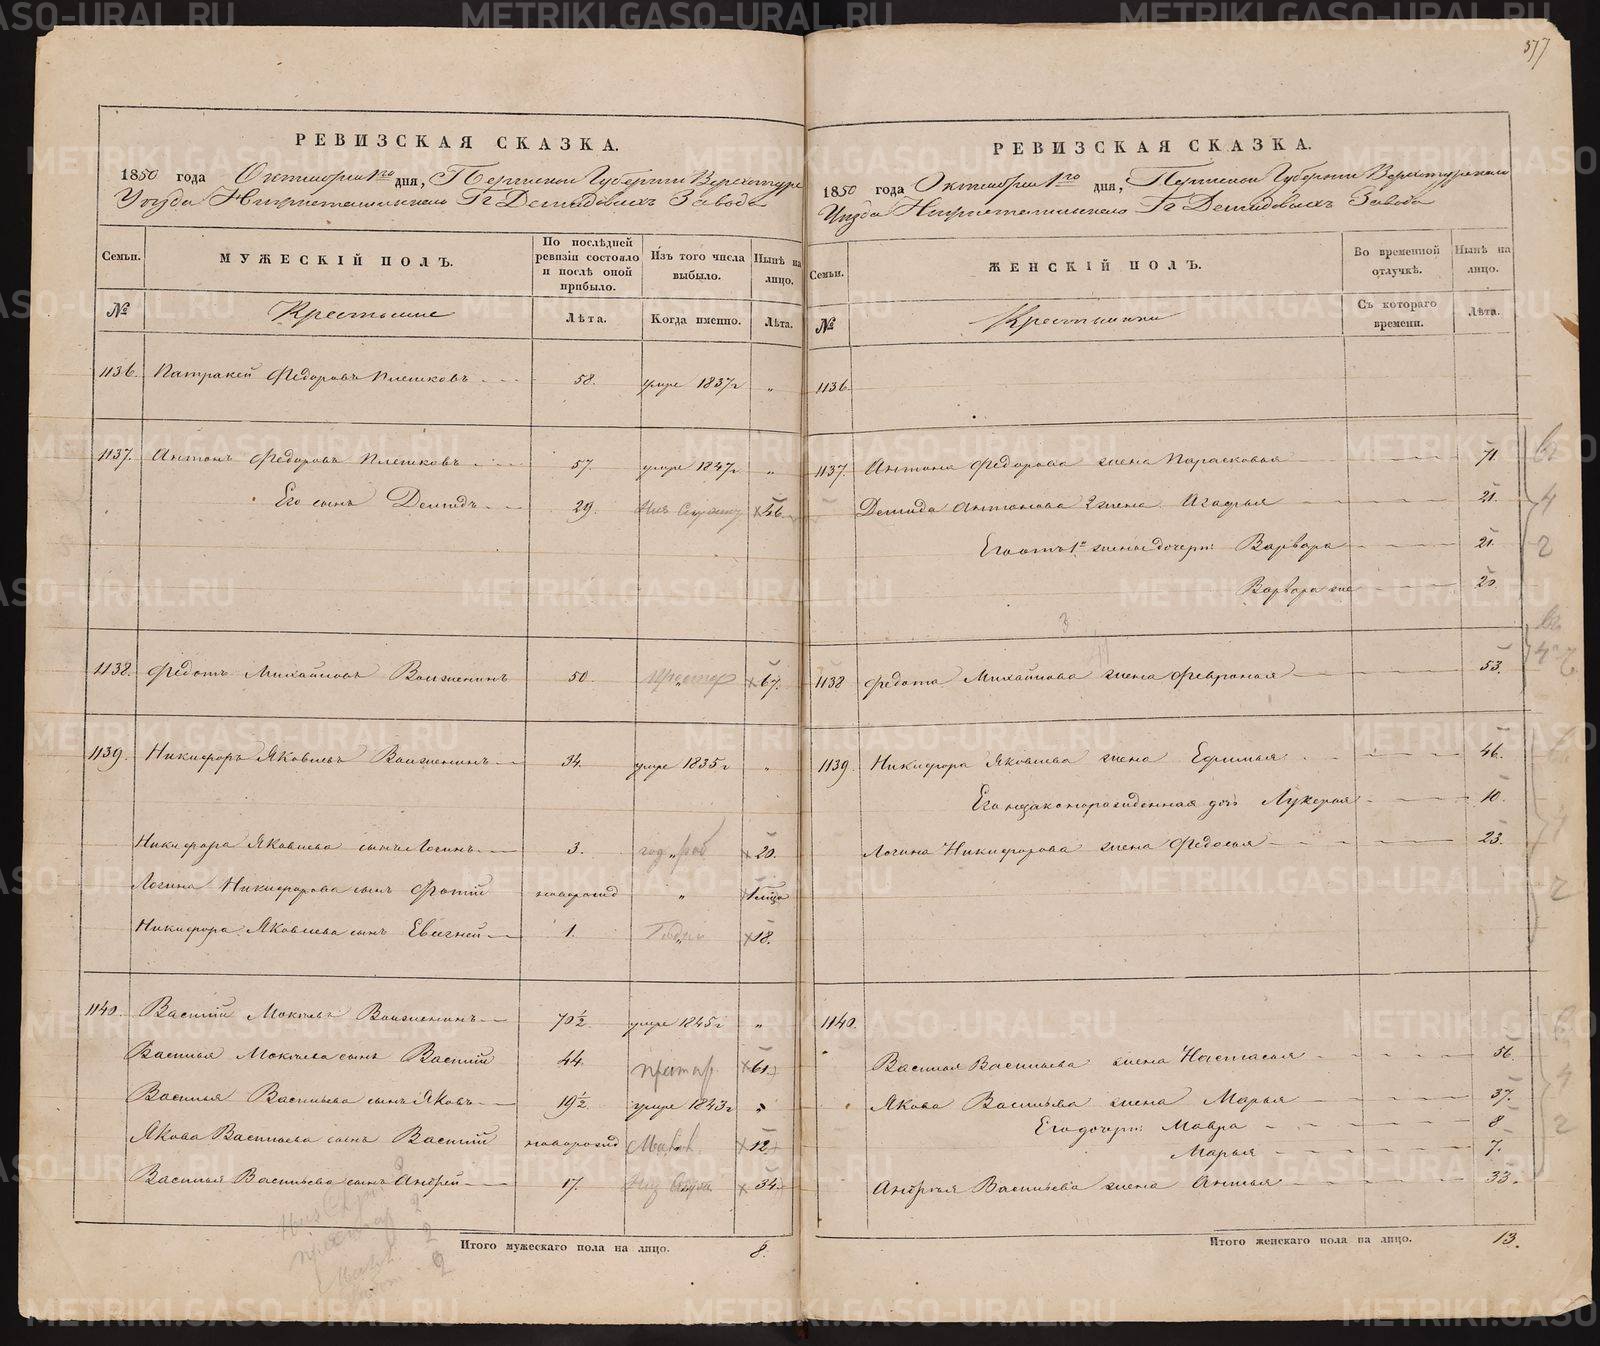 377
РЕВИЗСКАЯ СКАЗКА.
1850 года Октября 1го дня, Пермской Губернии Верхотурс
Уезда Нижнетагильскаго Гг Демидовыхъ Завода
Семьи.
МУЖЕСКІЙ ПОЛЪ.
По послѣдней ревизіи состояло и послѣ оной прибыло.
Изъ того числа выбыло.
Нынѣ на лицо.
№
Крестьяне
Лѣта.
Когда именно.
Лѣта.
1136. Патракей Федоровъ Плешковъ 58. умре 1837г „
1137. Антонъ Федоровъ Плешковъ 57. умре 1847г „
Его сынъ Демидъ 29. 46
1138. Федотъ Михайловъ Волженинъ 50. „ 67.
1139. Никифоръ Яковлевъ Волженинъ 34. умре 1835г „
Никифора Яковлева сынъ Логинъ 3. „ 20.
Логина Никифорова сынъ Фотій новорожд „
Никифора Яковлева сынъ Евгеній 1. „ 18.
1140. Василій Мокѣевъ Волженинъ 70½. умре 1845г „
Василья Мокѣева сынъ Василій 44. 61.
Василья Васильева сынъ Яковъ 19½. умре 1843г „
Якова Васильева сынъ Василій новорожд 12
Василья Васильева сынъ Андрей 17. 34.
Итого мужескаго пола на лицо. 8.
РЕВИЗСКАЯ СКАЗКА.
1850 года Октября 1го дня, Пермской Губернии Верхотурскаго
Уезда Нижнетагильскаго Гг Демидовыхъ Завода
Семьи.
ЖЕНСКІЙ ПОЛЪ.
Во временной отлучкѣ.
Нынѣ на лицо.
№
Крестьянки
Съ котораго времени.
Лѣта.
1136
1137. Антона Федорова жена Парасковья 71.
Демида Антонова 2 жена Агафья 21.
Его отъ 1й жены дочери: Варвара 21.
Варвара же 20
1138 Федота Михайлова жена Февронья 53.
1139. Никифора Яковлева жена Ефимья 46.
Его незаконорожденная дочь Лукерья 10.
Логина Никифорова жена Федосья 23.
1140.
Василья Васильева жена Настасья 56.
Якова Васильева жена Марья 37.
Его дочери: Мавра 8
Марья 7.
Андрея Васильева жена Анна 33.
Итого женскаго пола на лицо. 13.
METRIKI.GASO-URAL.RU